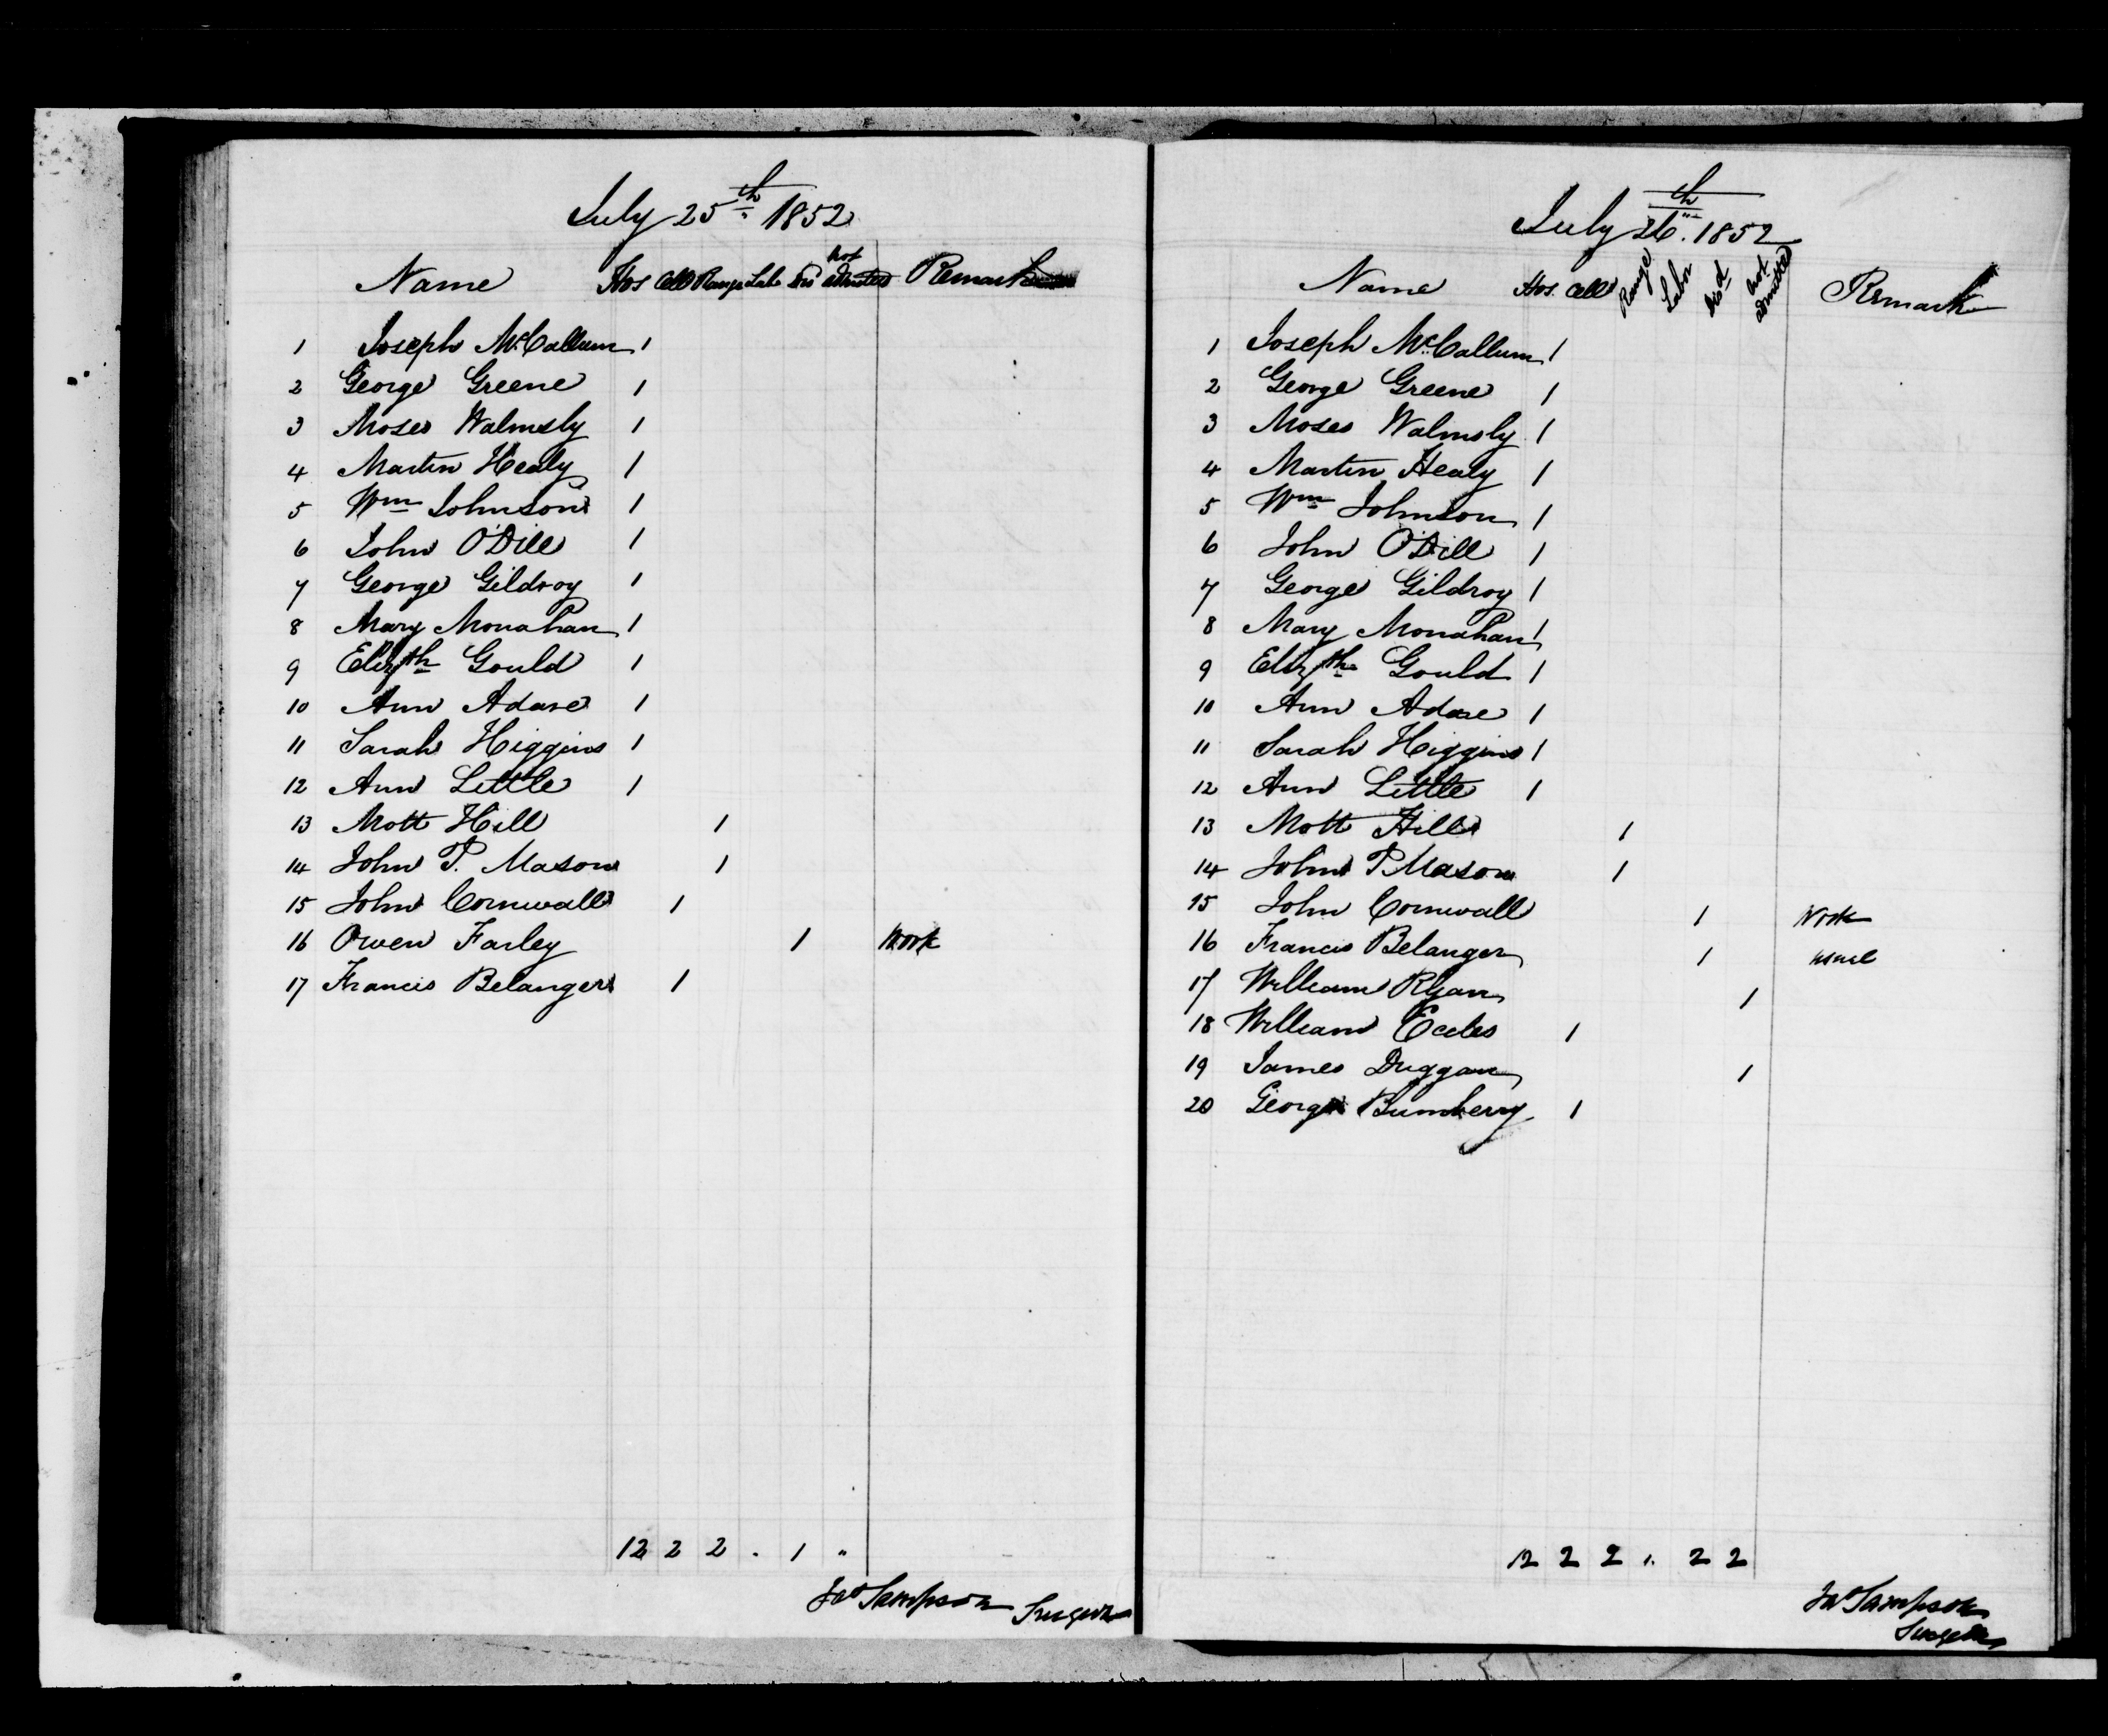 July 25th 1852
Name Hos Cell Range Lab Dis not admitted Remark
1 Joseph McCallum 1
2 George Greene 1
3 Moses Walmsly 1
4 Martin Healy 1
5 Wm Johnson 1
6 John O'Dill 1
7 George Gildroy 1
8 Mary Monahan 1
9 Elizth Gould 1
10 Ann Adare 1
11 Sarah Higgins 1
12 Ann Little 1
13 Mott Hill 1
14 John P. Mason 1
15 John Cornwall 1
16 Owen Farley 1 Work
17 Francis Belanger 1
12 2 2 . 1 "
Jas Sampson Surgeon
July 26th. 1852
Name Hos. Cell Range Labr Disd not admitted Remark
1 Joseph McCallum 1
2 George Greene 1
3 Moses Walmsly 1
4 Martin Healy 1
5 Wm Johnson 1
6 John O'Dill 1
7 George Gildroy 1
8 Mary Monahan 1
9 Elizth Gould 1
10 Ann Adare 1
11 Sarah Higgins 1
12 Ann Little 1
13 Mott Hill 1
14 John P Mason 1
15 John Cornwall 1 Work
16 Francis Belanger 1
17 William Ryan 1
18 William Eccles 1
19 James Duggan 1
20 George Bumberry 1
12 2 2 2 2
Jas Sampson
Surgeon